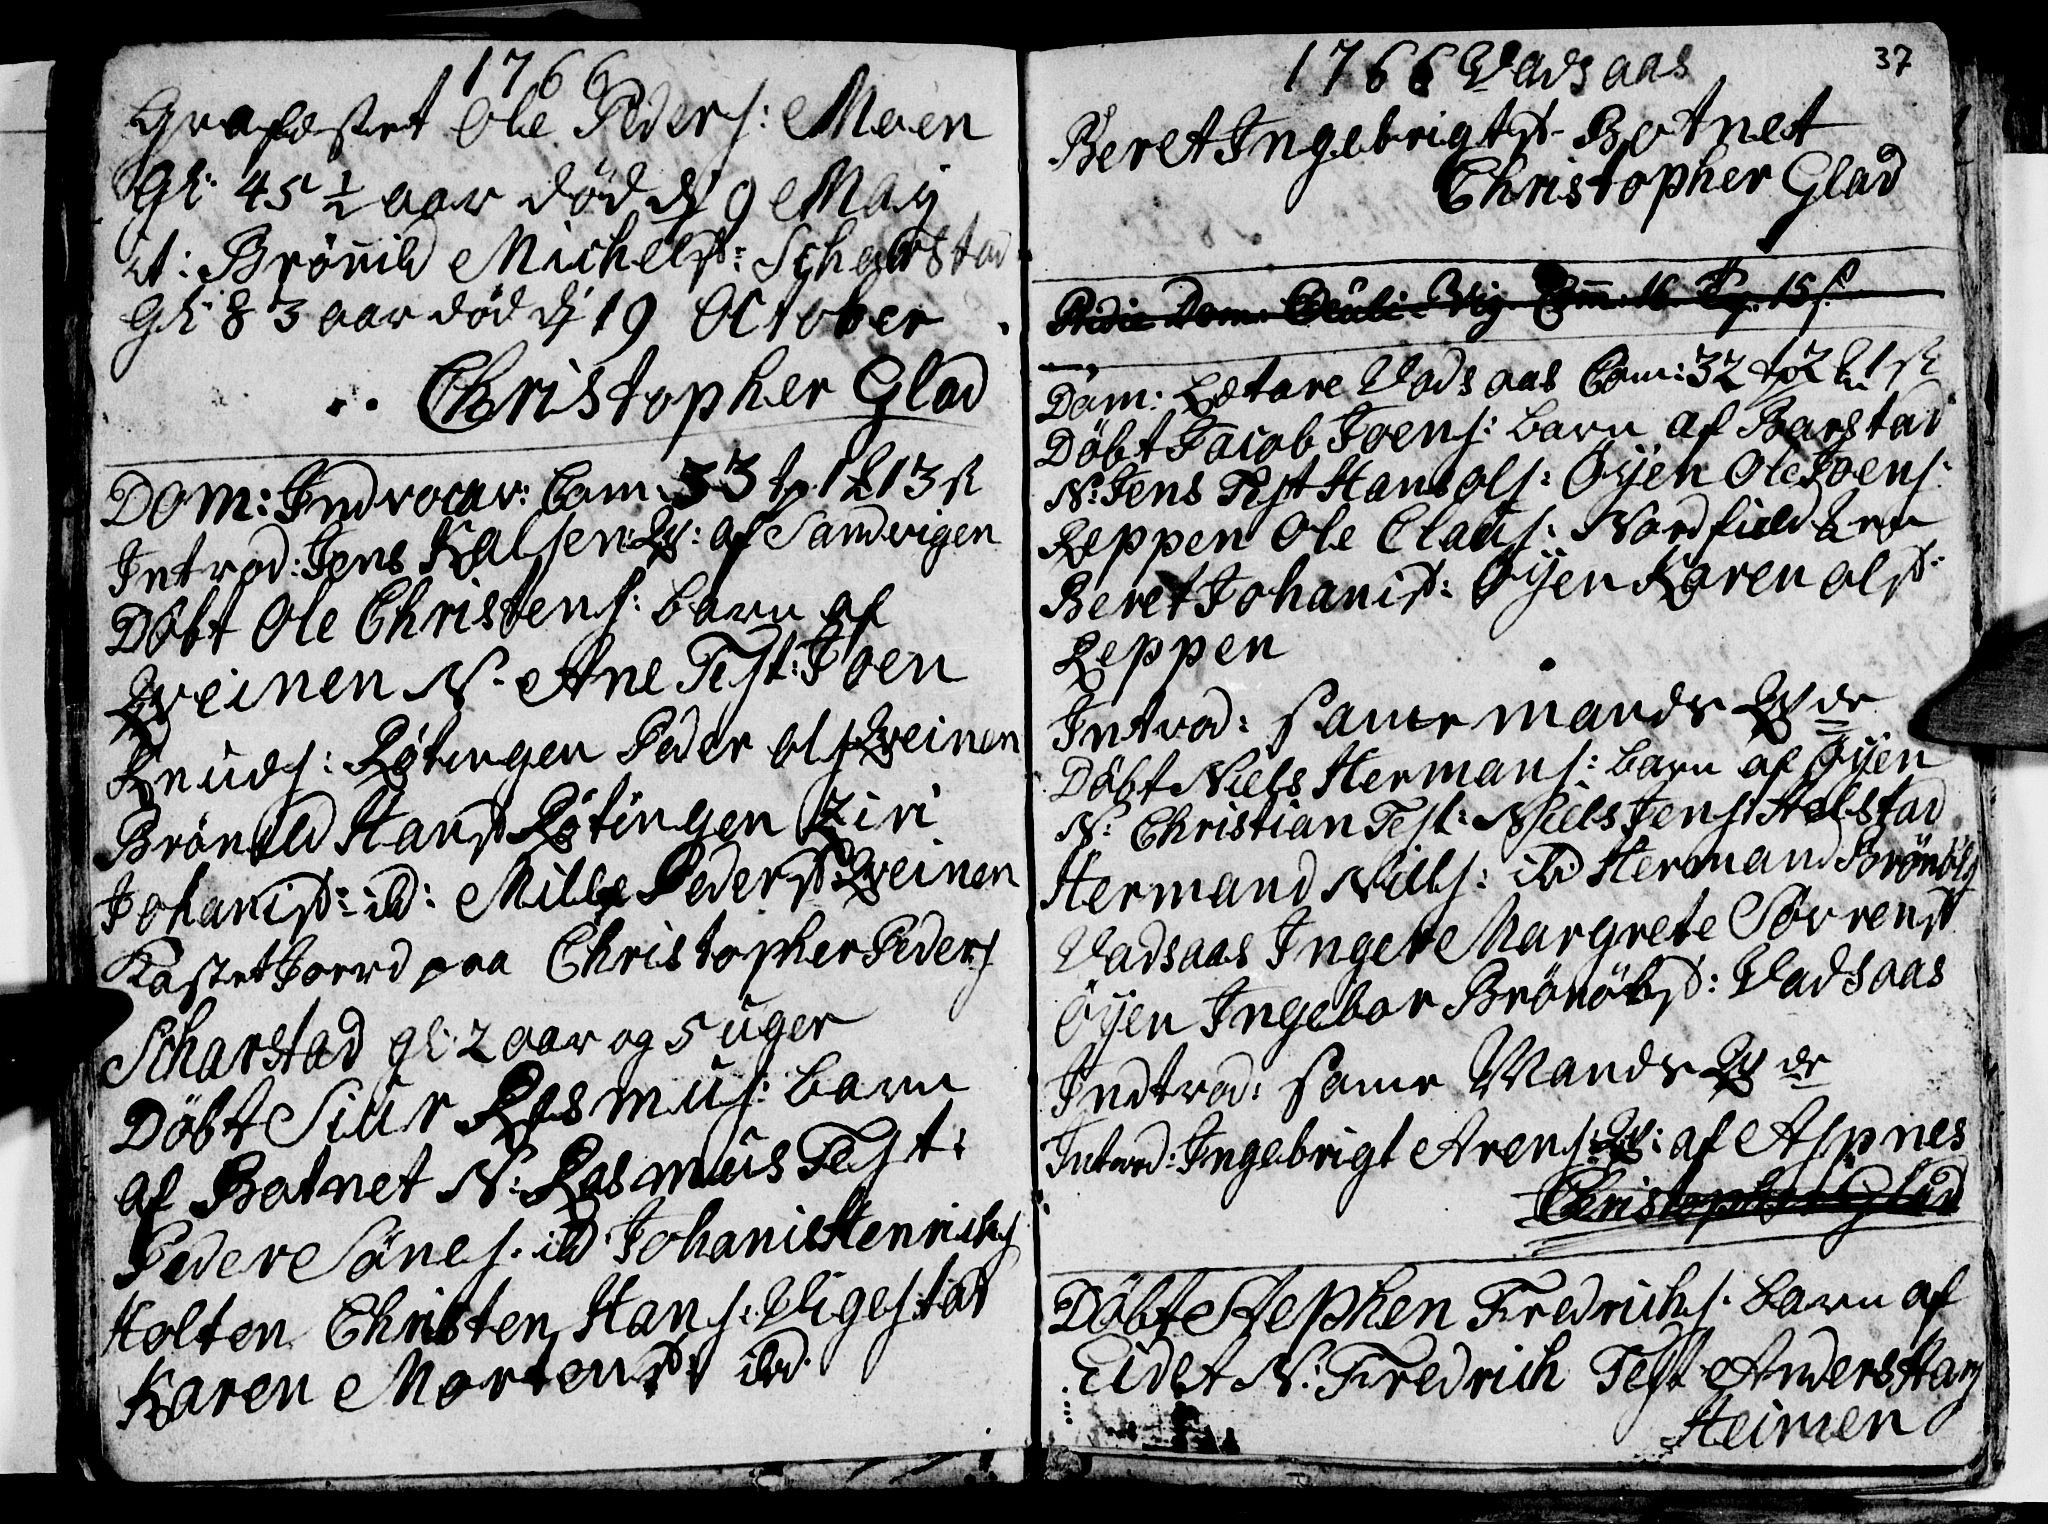 1766
Grafæstet Ole Peders: Moen
Gl: 45 1/2 aar död d 9 Maij
it: Brönild Michelsd: Scharstad
Gl: 83 aar död d 19 October
Christopher Glad
Dom: Indvocav: Com: 33
Introd: Jens Kalsen: Qv: af Sandvigen
Döbt Ole Christens: barn af
Qveinen N. Ane Test: Joen
Knuds: Rötingen Peder ols Qveinen
Brönild Hansd Rötingen Ziri
Johanisd: ibd: Mille Pedersd: Qveinen
Kastet Jorrd paa Christopher Peders
Scharstad gl: 2 aar og 5 uger
Döbt Siur Rasmus: barn
af Botnet N: Rasmus Test:
Peder Sönes: ibd Johanis Henrichs
Holten Christen Hans: Vigestad
Karen Mortensd: ibd.
37
1766 Vadsaas
Beret Ingebrigtsd- Botnet
Christopher Glad
Dom: Lætare Vadsaas Com: 32
Döbt Jacob Joens: barn af Barstad
N: Jens Test Hans ols: Öyen Ole Joens:
Reppen Ole Claus: Nordfield
Beret Johanisd: Öyen Karen olsd:
Reppen
Introd: samme mands Qv de
Döbt Niels Hermans: barn af Öyen
N: Christian Test: Niels Jens: Helstad
Hermand Niels: ibd Hermand Brönöls
Vadsaas Inger Margrete Sörrensd
Öyen Ingebor Brönölsd: Vadsaas
Indtrod: samme Mands Qv de
Introd: Ingebrigt Arens: Qv: af Aspnes
Christopher Glad
Döbt Stephen Fredrichs: barn af
Eidet N: Fredrich Test Anders Hans
Heimen